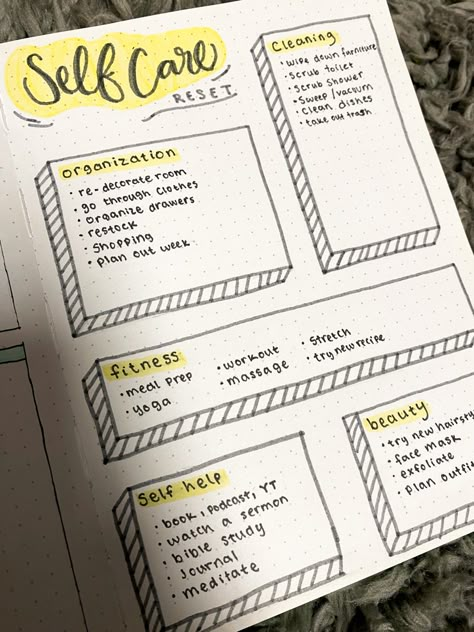 Self Care
RESET
Cleaning
• wipe down furniture
• scrub toilet
• scrub shower
• sweep/vacuum
• clean dishes
• take out trash
organization
• re-decorate room
• go through clothes
• organize drawers
• restock
• shopping
• plan out week
fitness
• meal prep
• yoga
• workout
• massage
• stretch
• try new recipe
self help
• book, podcast, YT
• watch a sermon
• bible study
• journal
• meditate
beauty
• try new hairsty
• face mask
• exfoliate
• plan outfi